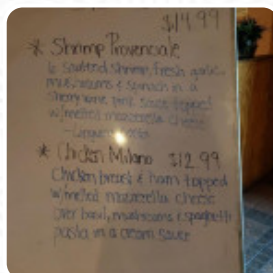 $14.99
* Shrimp Provencale
6 sauteed shrimp, fresh garlic
mushrooms & spinach in a
sherry wine pink sauce topped
w/melted mozzarella cheese
* Chicken Milano $12.99
Chicken breast & ham topped
w/melted mozzarella cheese
over basil, mushrooms & spaghetti
pasta in a cream sauce